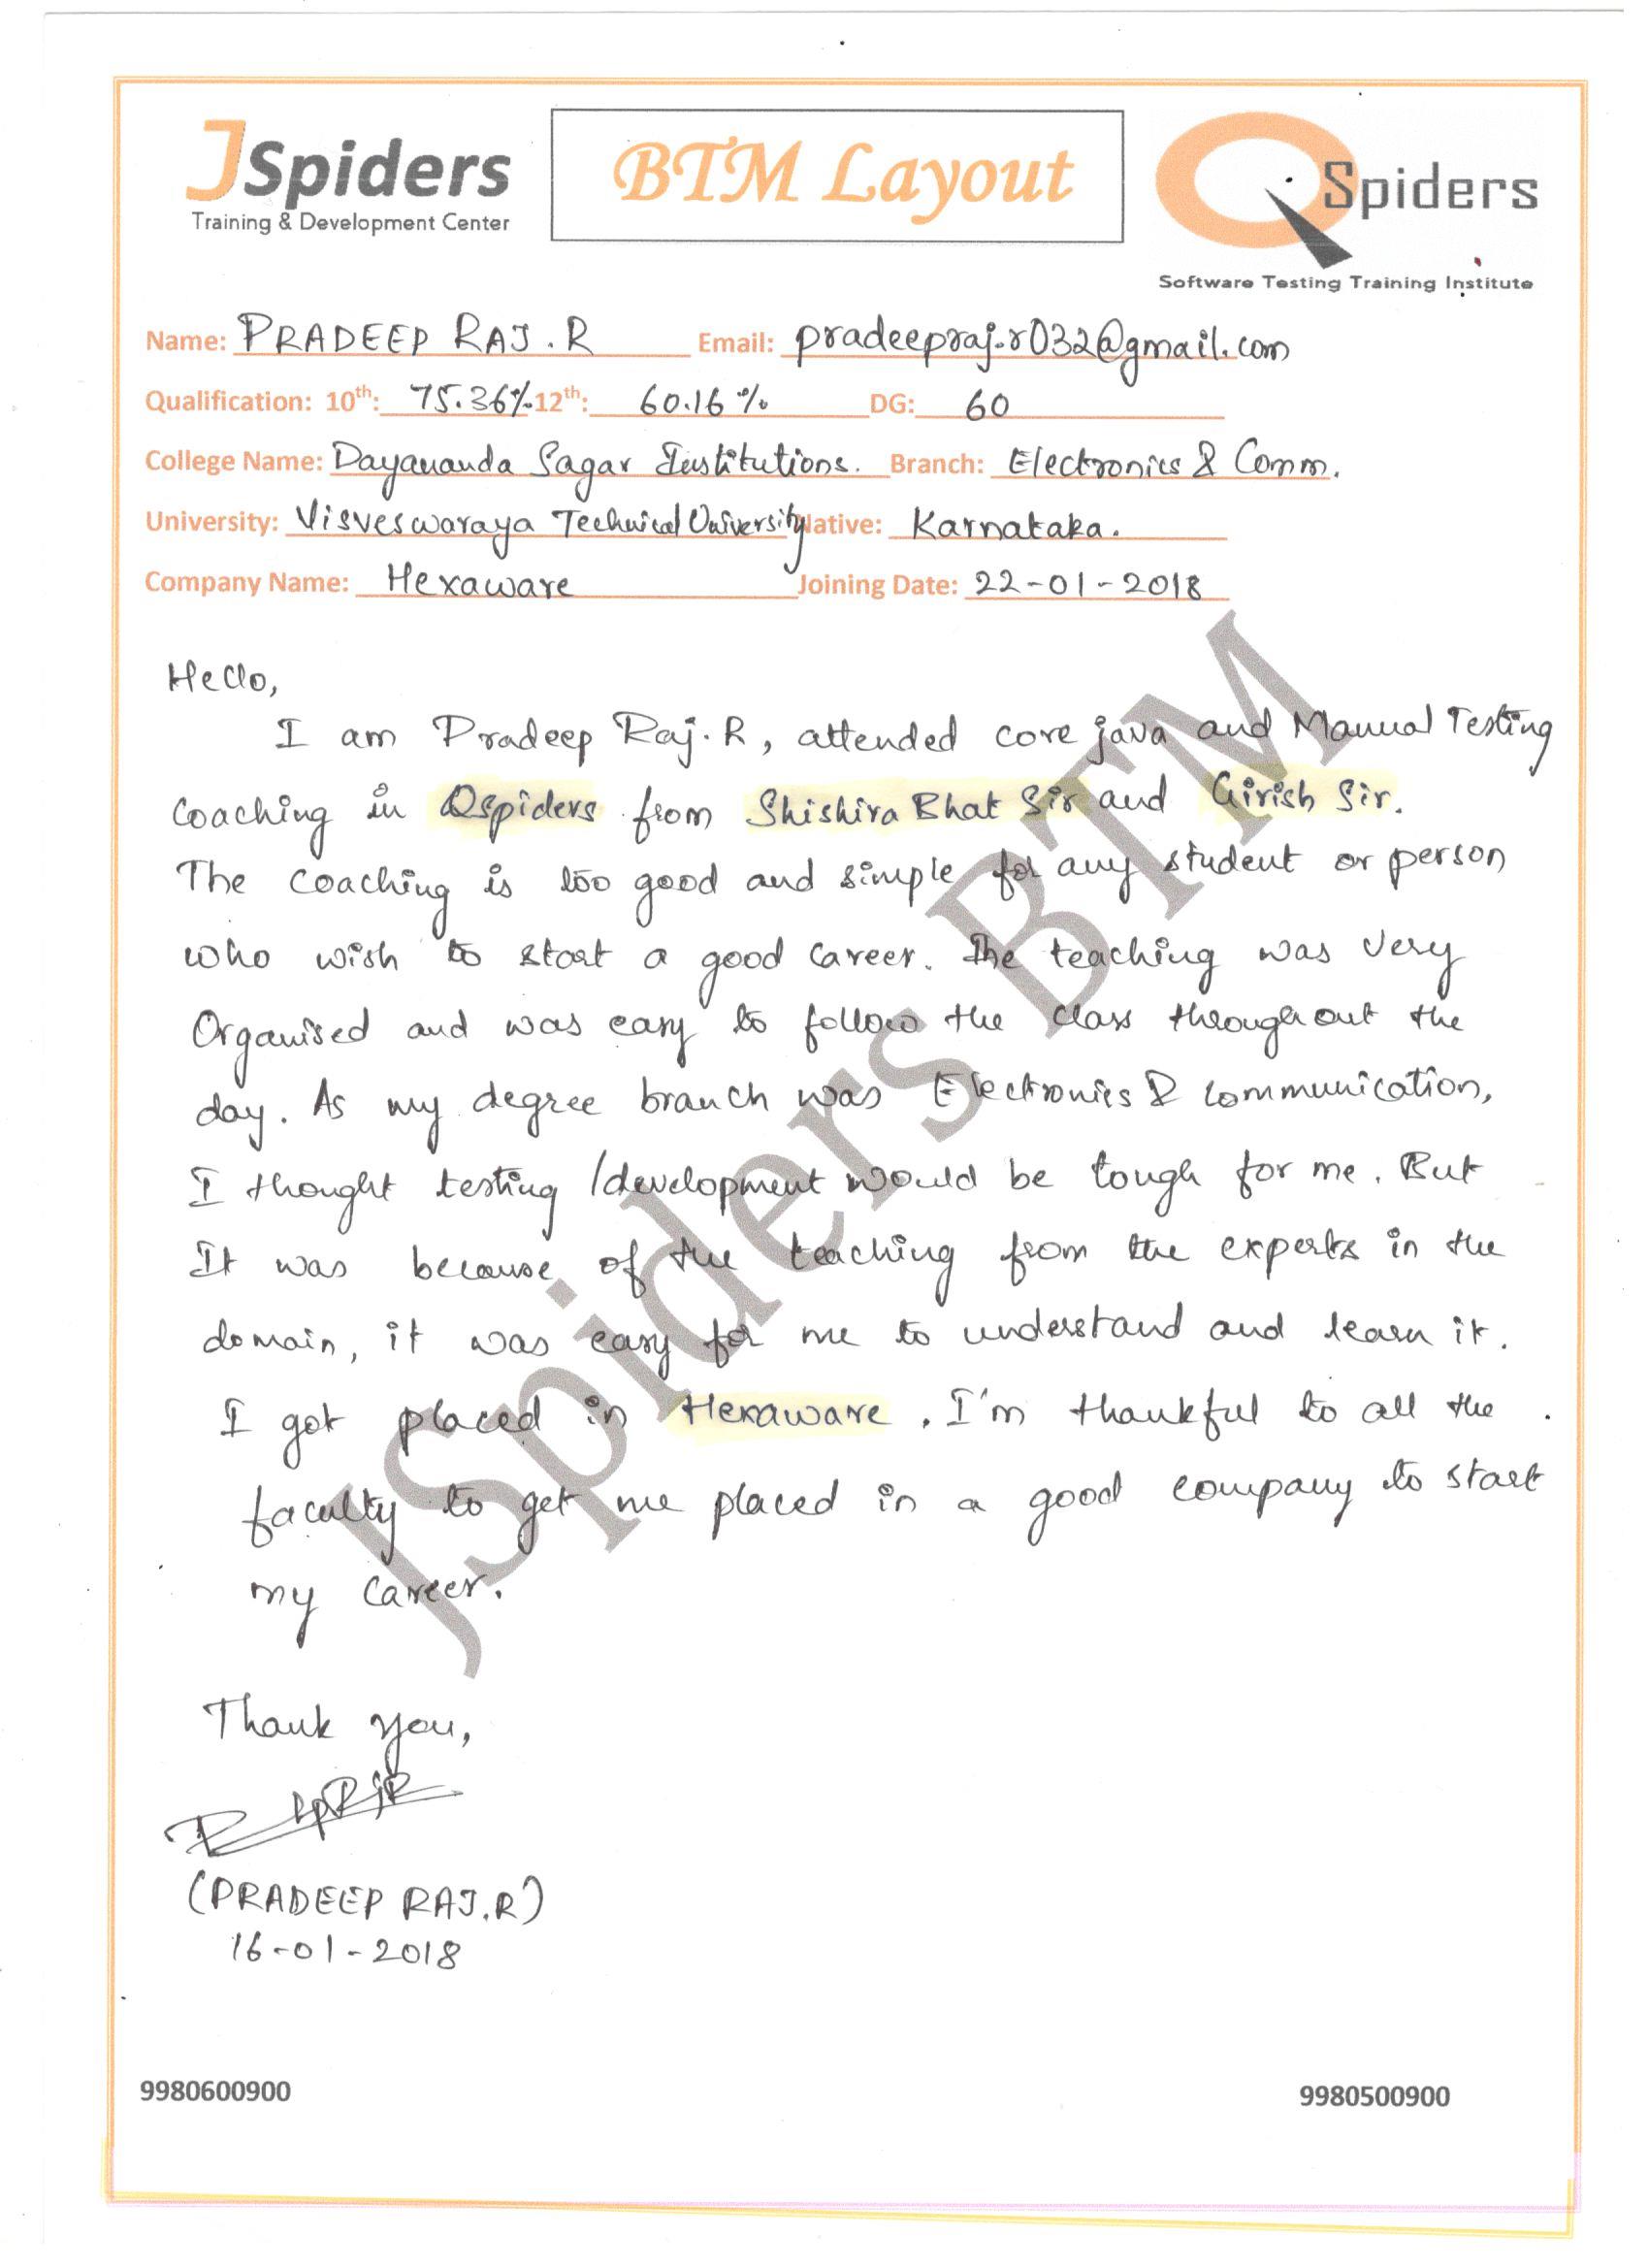 JSpiders
Training & Development Center
BTM Layout
QSpiders
Software Testing Training Institute
Name: PRADEEP RAJ.R Email: pradeepraj.r032@gmail.com
Qualification: 10th: 75.36% 12th: 60.16% DG: 60
College Name: Dayananda Sagar Institutions. Branch: Electronics & Comm.
University: Visveswaraya Technical University Native: Karnataka.
Company Name: Hexaware Joining Date: 22-01-2018
Hello,
I am Pradeep Raj.R, attended core java and Manual Testing
coaching in Qspiders from Shishira Bhat Sir and Girish Sir.
The coaching is too good and simple for any student or person
who wish to start a good career. The teaching was very
Organised and was easy to follow the class throughout the
day. As my degree branch was Electronics & communication,
I thought testing/development would be tough for me. But
It was because of the teaching from the experts in the
domain, it was easy for me to understand and learn it.
I got placed in Hexaware. I'm thankful to all the
faculty to get me placed in a good company to start
my career.
Thank you,
(PRADEEP RAJ.R)
16-01-2018
9980600900 9980500900
JSpiders BTM